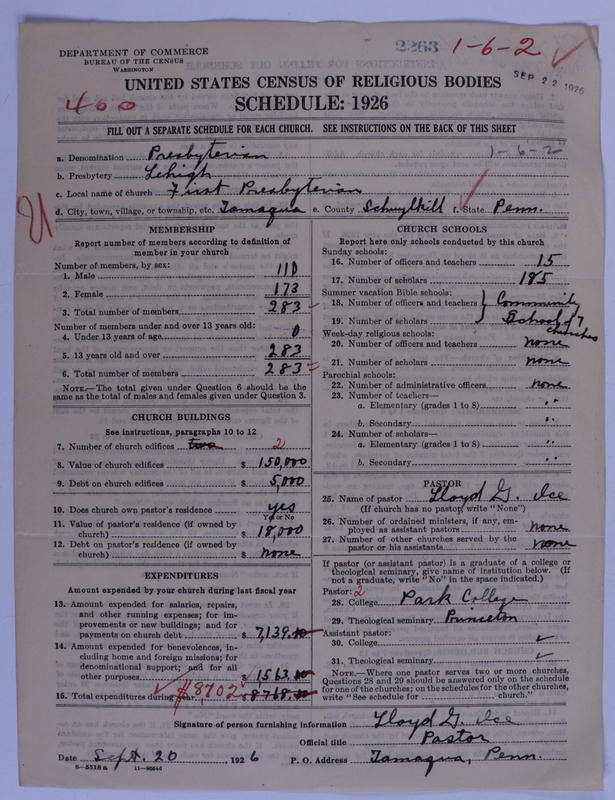 2263 1-6-2
DEPARTMENT OF COMMERCE
BUREAU OF THE CENSUS
WASHINGTON
SEP 22 1926
UNITED STATES CENSUS OF RELIGIOUS BODIES
400
SCHEDULE: 1926
FILL OUT A SEPARATE SCHEDULE FOR EACH CHURCH. SEE INSTRUCTIONS ON THE BACK OF THIS SHEET
a. Denomination Presbyterian 1-6-2
b. Presbytery Lehigh
c. Local name of church First Presbyterian
d. City, town, village, or township, etc. Tamaqua e. County Schuylkill f. State Penn.
MEMBERSHIP
Report number of members according to definition of
member in your church
Number of members, by sex:
1. Male 110
2. Female 173
3. Total number of members 283
Number of members under and over 13 years old:
4. Under 13 years of age 0
5. 13 years old and over 283
6. Total number of members 283
NOTE.—The total given under Question 6 should be
same as the total of males and females given under Question 3.
CHURCH BUILDINGS
See instructions, paragraphs 10 to 12
7. Number of church edifices two 2
8. Value of church edifices $ 150,000
9. Debt on church edifices $ 5,000
10. Does church own pastor's residence yes
Yes or No
11. Value of pastor's residence (if owned by
church) $ 18,000
12. Debt on pastor's residence (if owned by
church) $ none
EXPENDITURES
Amount expended by your church during last fiscal year
13. Amount expended for salaries, repairs,
and other running expenses; for im-
provements or new buildings; and for
payments on church debt $ 7,139.
14. Amount expended for benevolences, in-
cluding home and foreign missions; for
denominational support; and for all
other purposes $ 1563.
15. Total expenditures during year $8702 8768.
CHURCH SCHOOLS
Report here only schools conducted by this church
Sunday schools:
16. Number of officers and teachers 15
17. Number of scholars 185
Summer vacation Bible schools:
18. Number of officers and teachers } Community
19. Number of scholars School of 7
churches
Week-day religious schools:
20. Number of officers and teachers none
21. Number of scholars none
Parochial schools:
22. Number of administrative officers none
23. Number of teachers—
a. Elementary (grades 1 to 8) "
b. Secondary "
24. Number of scholars—
a. Elementary (grades 1 to 8) "
b. Secondary "
PASTOR
25. Name of pastor Lloyd G. Ice
(If church has no pastor, write "None")
26. Number of ordained ministers, if any, em-
ployed as assistant pastors none
27. Number of other churches served by the
pastor or his assistants none
If pastor (or assistant pastor) is a graduate of a college or
theological seminary, give name of institution below. (If
not a graduate, write "No" in the space indicated.)
Pastor: 2
28. College Park College
29. Theological seminary Princeton
Assistant pastor:
30. College
31. Theological seminary
NOTE.—Where one pastor serves two or more churches,
Questions 28 and 29 should be answered only on the schedule
for one of the churches; on the schedules for the other churches,
write "See schedule for church."
Signature of person furnishing information Lloyd G. Ice
Official title Pastor
Date Sept. 20, 1926 P. O. Address Tamaqua, Penn.
8—5518a 11—9